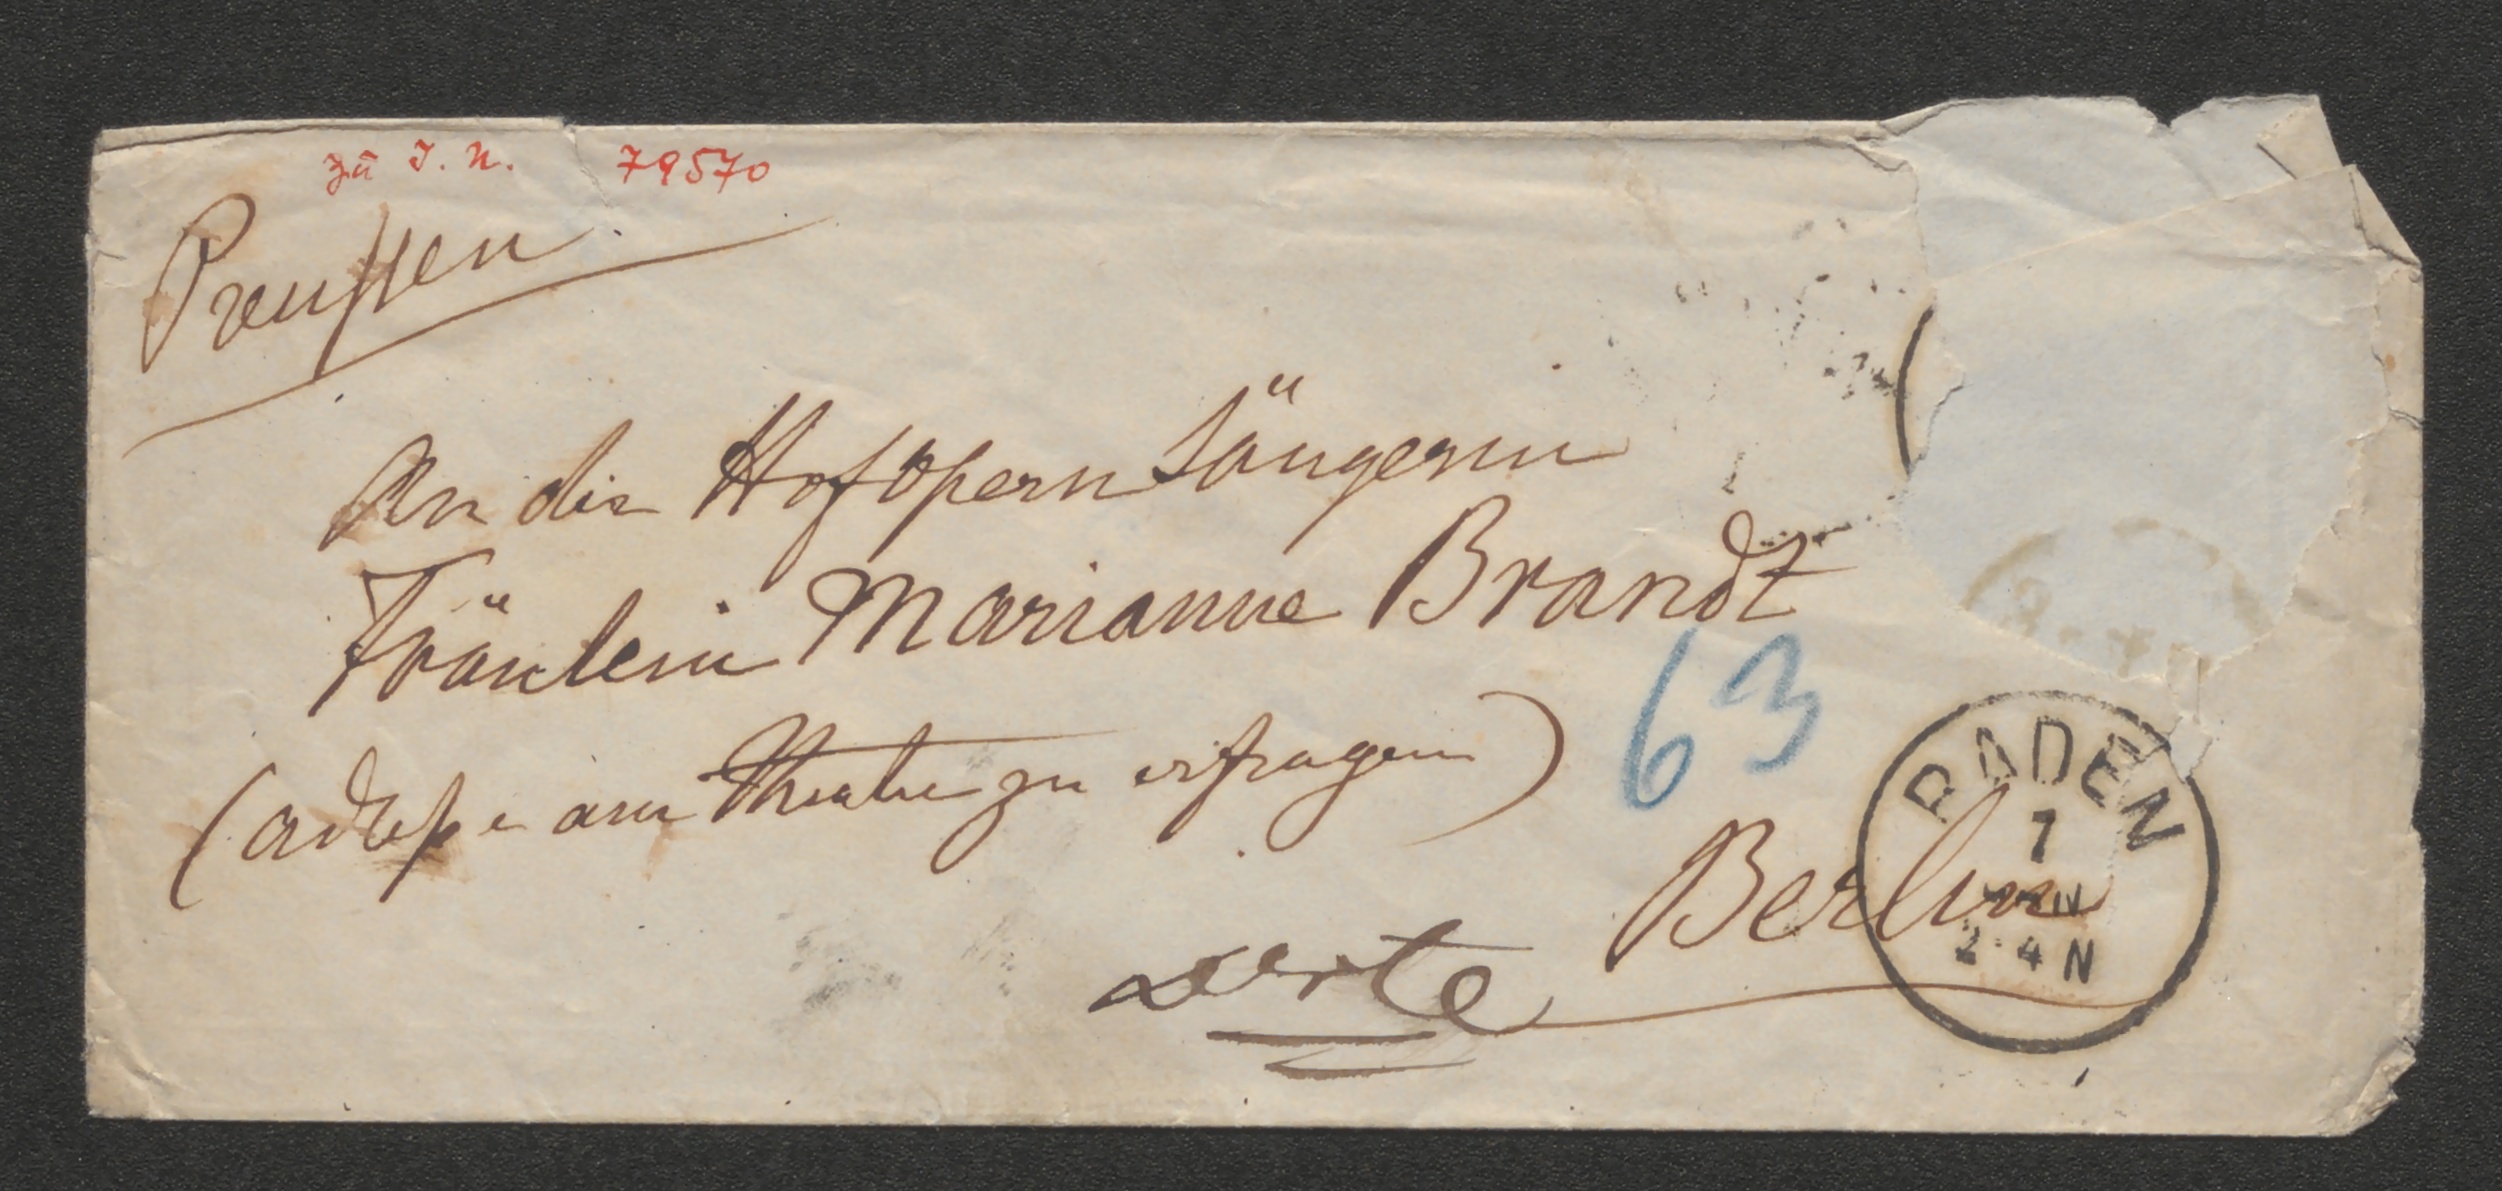 zu I. N. 79570
Preussen
An die Hofopern Sängerin
Fräulein Marianne Brandt
(adresse am Theater zu erfragen)
63
Berlin
verte
BADEN
7
2-4N